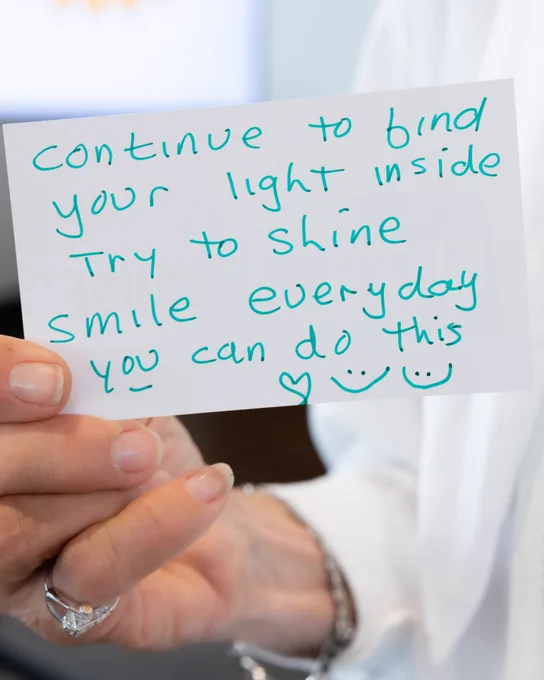 continue to find
your light inside
Try to shine
smile everyday
you can do this